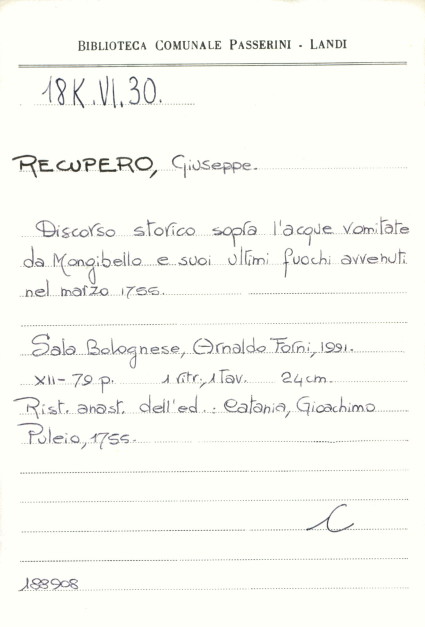 BIBLIOTECA COMUNALE PASSERINI - LANDI
18K.VI.30.
RECUPERO, Giuseppe.
Discorso storico sopra l'acque vomitate
da Mongibello e suoi ultimi fuochi avvenuti
nel marzo 1755.
Sala Bolognese, Arnaldo Forni, 1991.
XII-79 p. 1 ritr., 1 tav. 24cm.
Rist. anast. dell'ed.: Catania, Gioachimo
Puleio, 1755.
C
188908